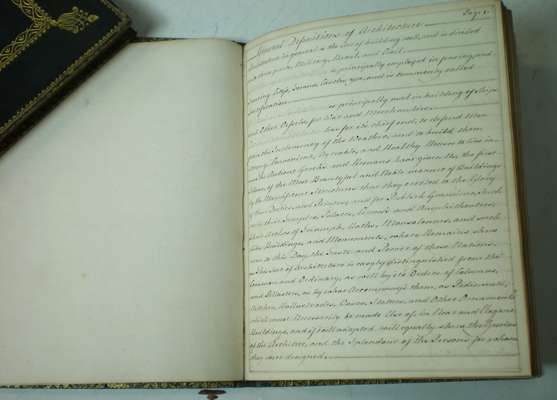 Page 1.
General Definitions of Architecture.
Architecture in general is the Art of building well, and is divided
into three parts, Military, Naval, and Civil.
is principally employed in
Towns, Castles, &c., and is commonly called
Fortification.
is principally used in building of Ships
and Other Vessels, for War and Merchandise.
has for its chief end, to defend Men
from the Inclemency of the Weather, and to build them
Convenient, Agreeable, and Healthy Houses to live in.
The Antient Greeks and Romans have given us the first
Ideas of the Most Beautyful and Noble manner of Buildings
by the Magnificent Structures that they erected to the Glory
of their Princes, and for Publick Conveniences, such
as their Temples, Palaces, and Amphitheatres,
their Arches of Triumph, Baths, Mausoleums, and such
like Buildings, and Monuments, whose Remains shew
us to this Day, the Taste and Power of those Nations.
This Sort of Architecture is easyly distinguished from the
Common and Ordinary, as well by its Orders of Columns,
and Pilasters, as by what Accompanys them, as Pediments,
Ballustrades, Statues, and Other Ornaments
which must Necessarily be made Use of in Noble and Elegant
Buildings, and if well adapted will equally shew the Genius
of the Architect, and the Splendour of the Persons for whom
they were designed.